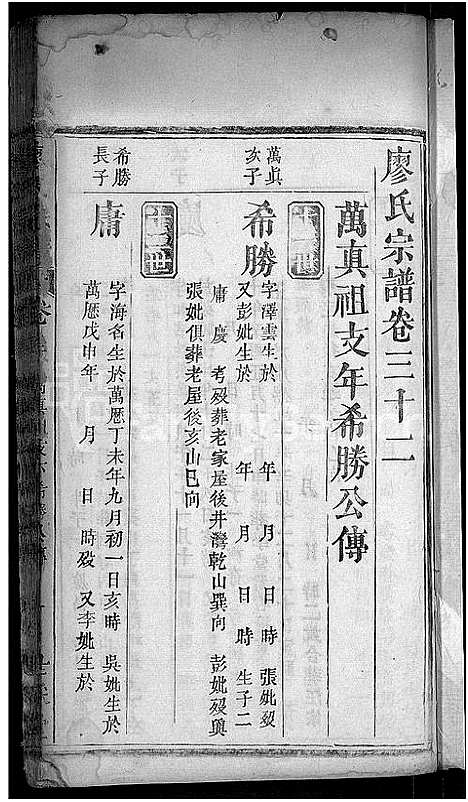 廖氏宗譜卷三十二
萬真祖支年希勝公傳
萬真
次子
希勝
字澤雲生於 年 月 日 時 張妣歿
又彭妣生於 年 月 日 時 生子二
庸 慶 考歿葬老家屋後井灣乾山巽向 彭妣歿與
張妣俱葬老屋後亥山巳向
希勝
長子
庸
字海名生於萬曆丁未年九月初一日亥時 吳妣生於
萬曆戊申年 月 日 時歿 又李妣生於